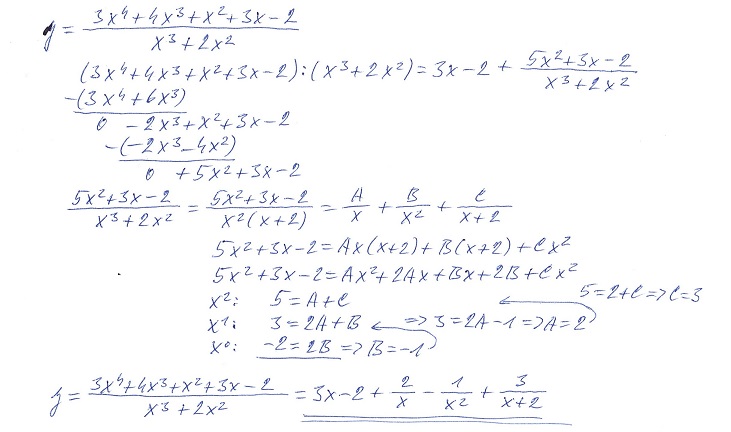 y = (3x⁴+4x³+x²+3x-2)/(x³+2x²)
(3x⁴+4x³+x²+3x-2):(x³+2x²)=3x-2+(5x²+3x-2)/(x³+2x²)
-(3x⁴+6x³)
0 -2x³+x²+3x-2
-(-2x³-4x²)
0 +5x²+3x-2
(5x²+3x-2)/(x³+2x²) = (5x²+3x-2)/(x²(x+2)) = A/x + B/x² + C/(x+2)
5x²+3x-2=Ax(x+2)+B(x+2)+Cx²
5x²+3x-2=Ax²+2Ax+Bx+2B+Cx²
x²: 5=A+C 5=2+C=>C=3
x¹: 3=2A+B =>3=2A-1=>A=2
x⁰: -2=2B=>B=-1
y = (3x⁴+4x³+x²+3x-2)/(x³+2x²) = 3x-2+2/x-1/x²+3/(x+2)